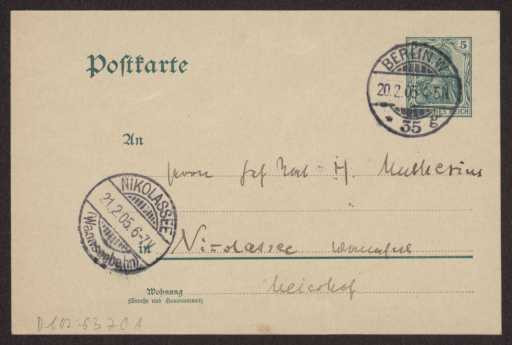 Postkarte
5
BERLIN W.
20.2.05.4-5N.
* 35 g
An
Herrn Geh Rat H. Muthesius
NIKOLASSEE
21.2.05.6-7V.
(Wannseebahn)
in Nicolassee
Wohnung
(Straße und Hausnummer)
D 102-6370 1